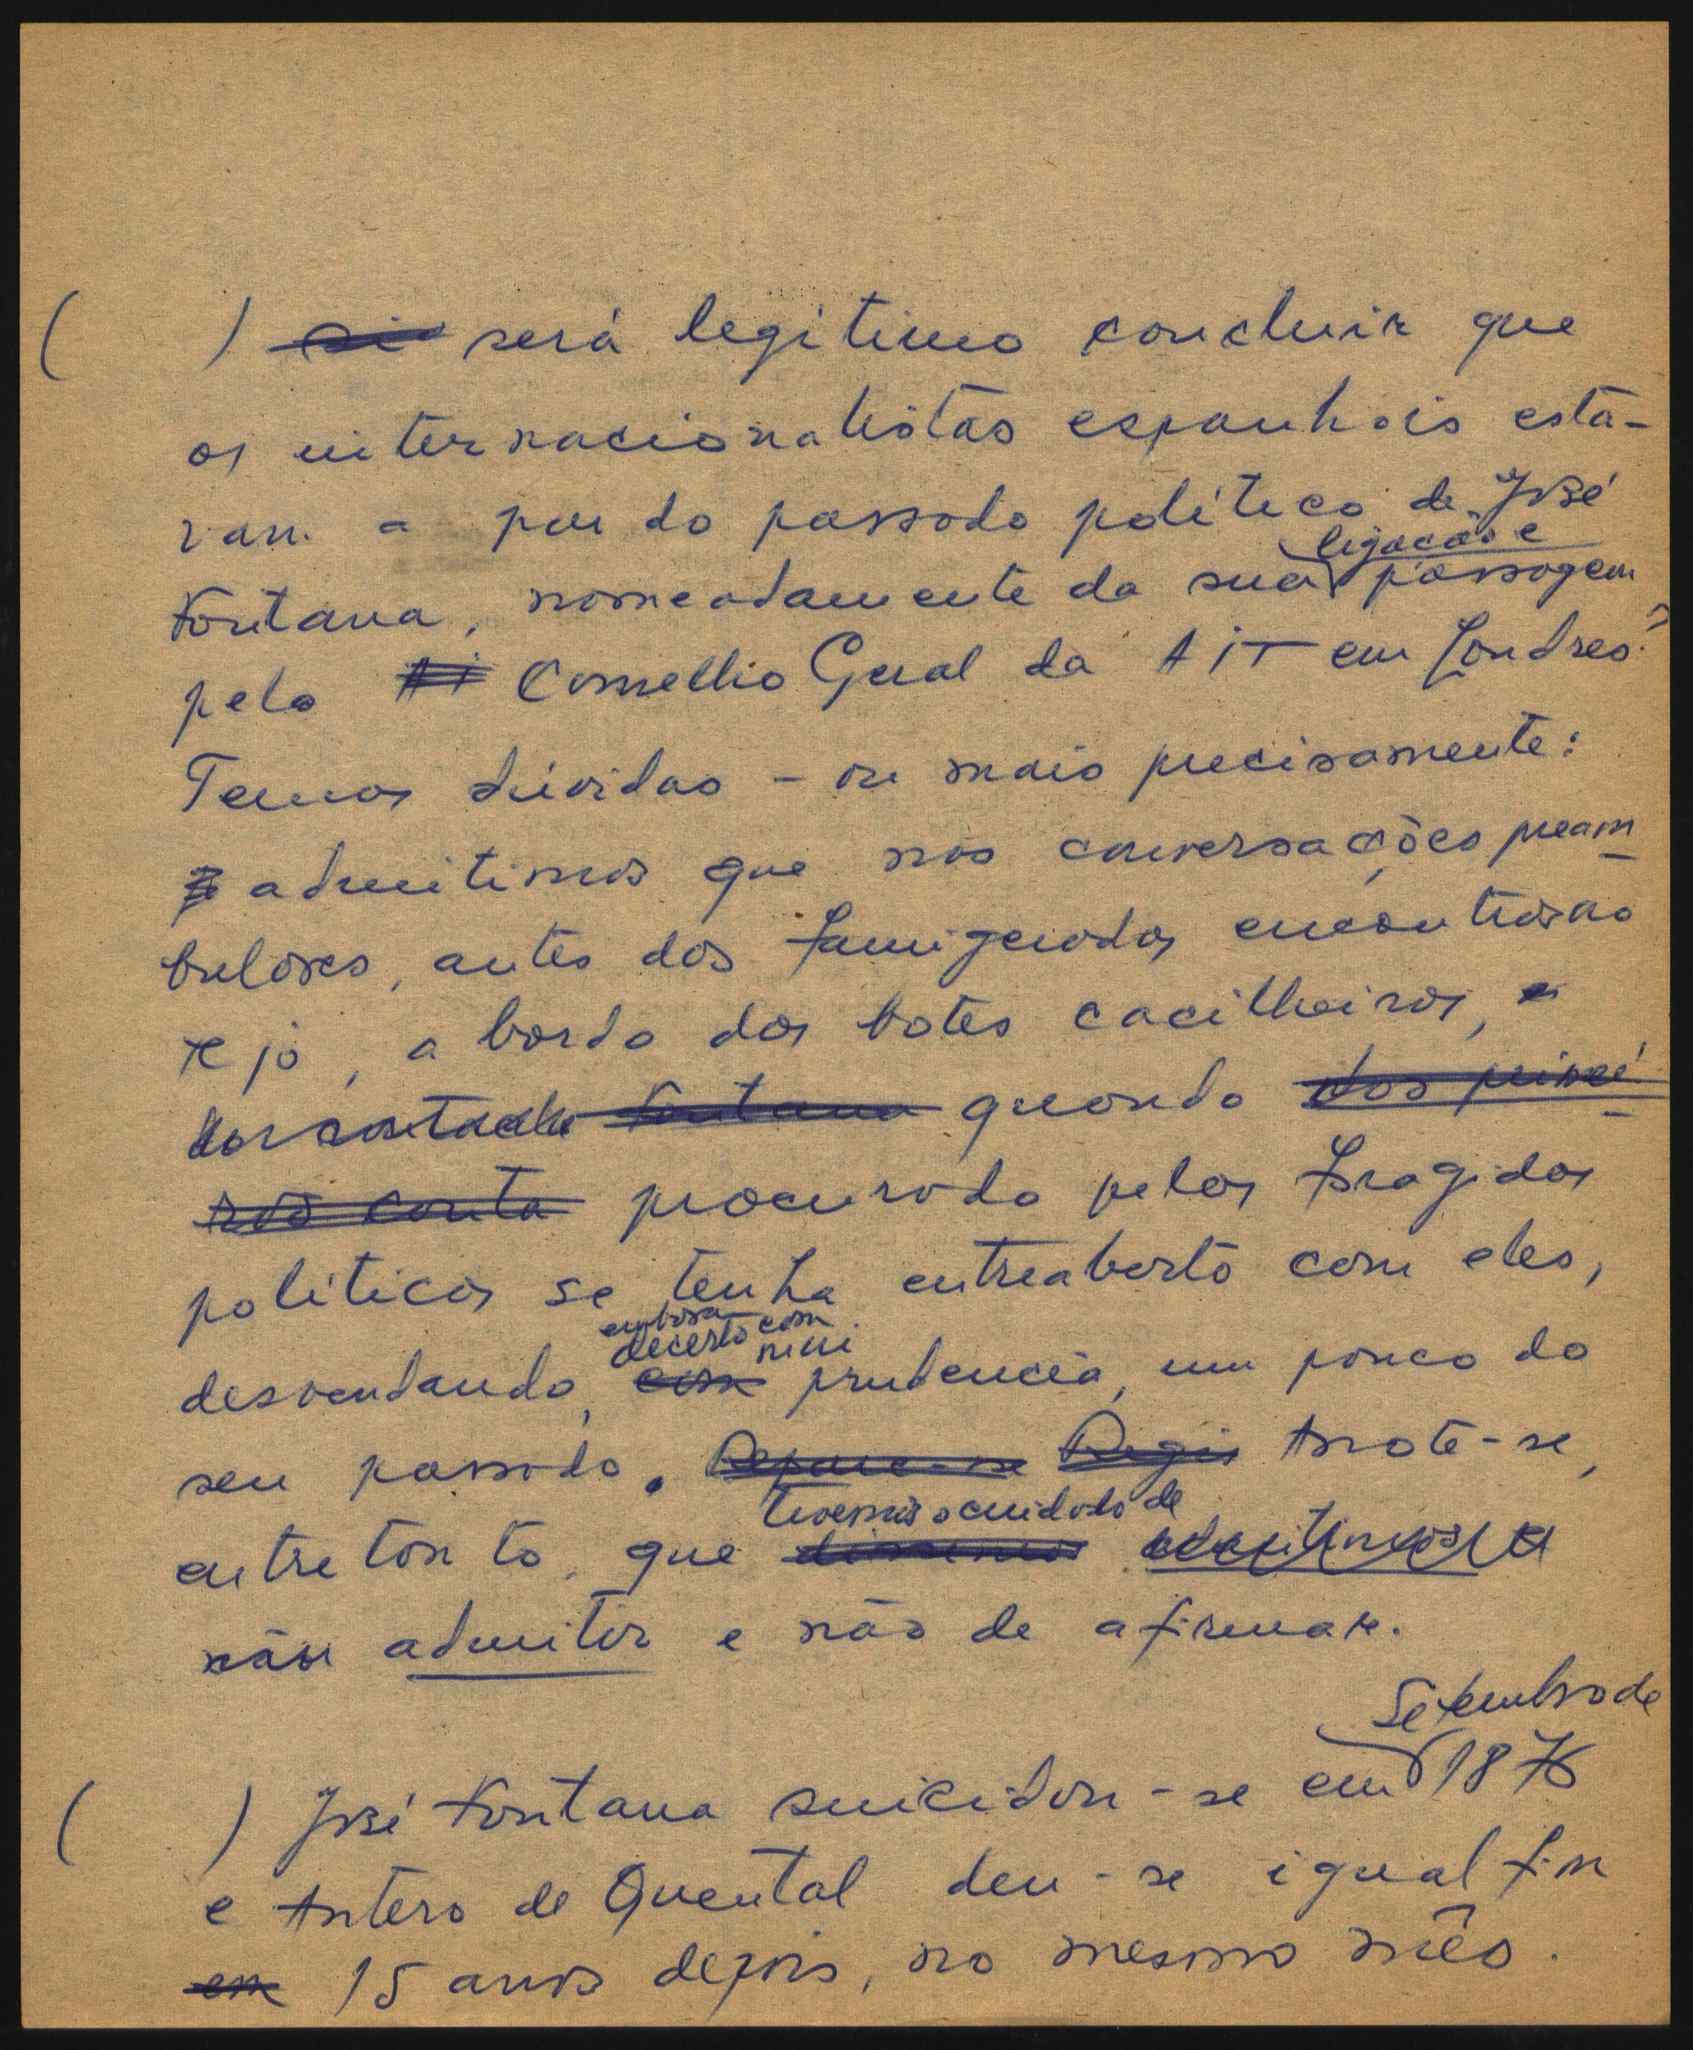 ( ) será legítimo concluir que
os internacionalistas espanhois esta-
vam a par do passado político de José
ligação e
Fontana, nomeadamente da sua passagem
pelo Conselho Geral da AIT em Londres?
Temos dúvidas - ou mais precisamente:
admitimos que nas conversações pream-
bulares, antes dos famigerados encontros no
Tejo, a bordo dos botes cacilheiros,
quando
procurado pelos foragidos
políticos se tenha entreaberto com eles,
embora
decerto com
mui
desvendando, prudencia, um pouco do
seu passado. Anote-se,
tivemos o cuidado de
entretanto, que
admitir e não de afirmar.
Setembro de
( ) José Fontana suicidou-se em 1876
e Antero de Quental deu-se igual fim
15 anos depois, no mesmo mês.